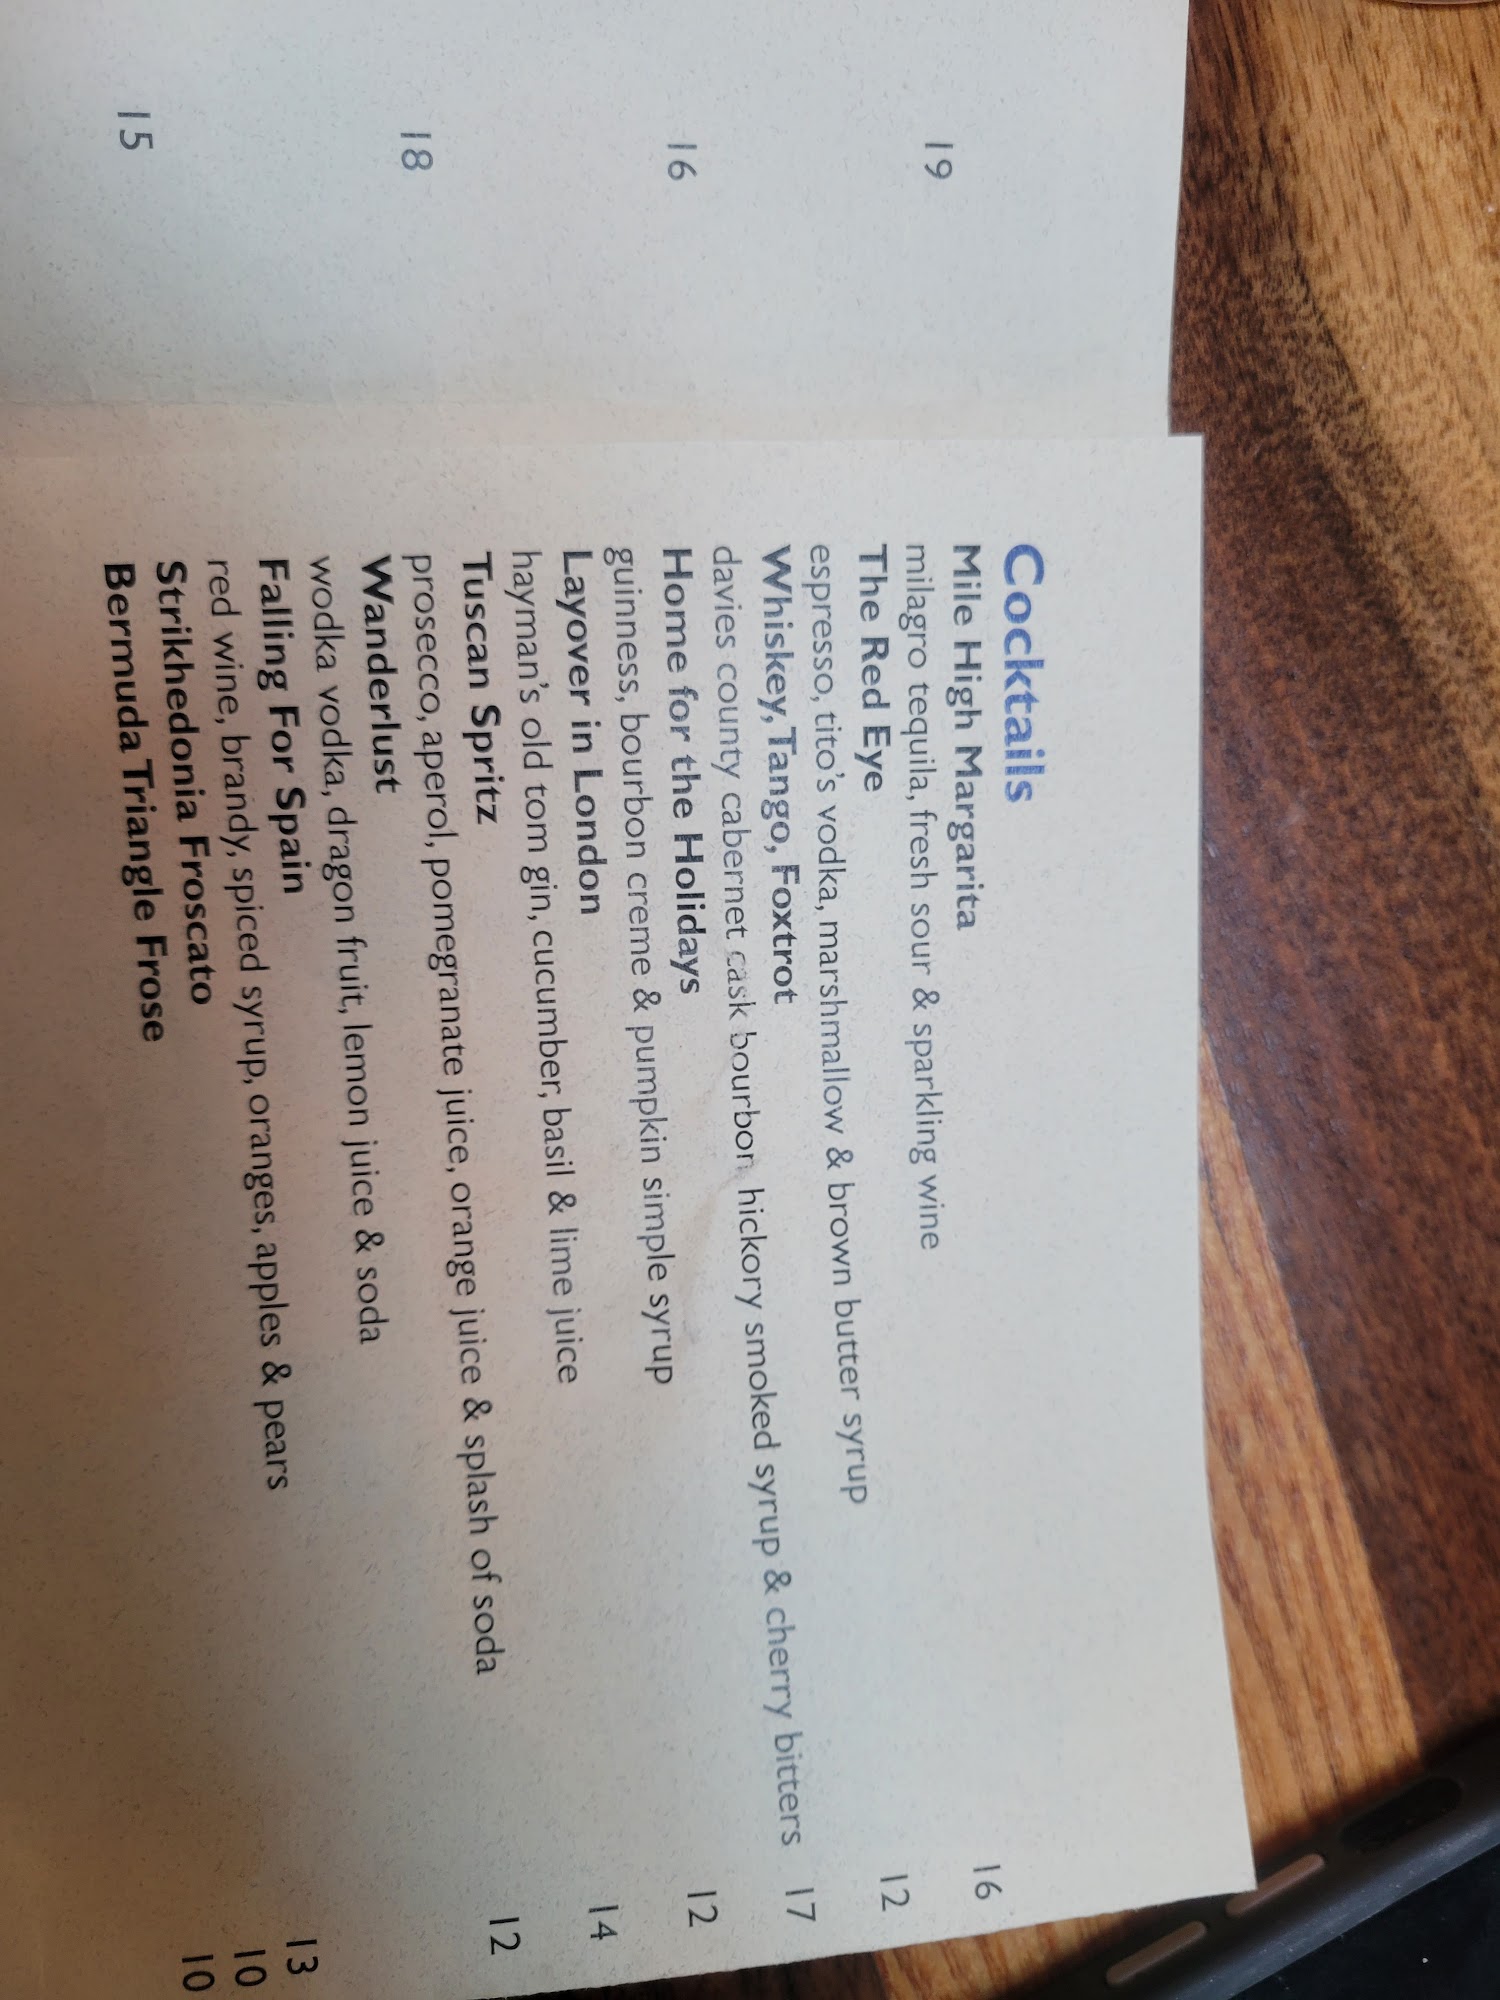 19
16
18
15
Cocktails
Mile High Margarita
milagro tequila, fresh sour & sparkling wine 16
The Red Eye
espresso, tito's vodka, marshmallow & brown butter syrup 12
Whiskey, Tango, Foxtrot
davies county cabernet cask bourbon hickory smoked syrup & cherry bitters 17
Home for the Holidays
guinness, bourbon creme & pumpkin simple syrup 12
Layover in London
hayman's old tom gin, cucumber, basil & lime juice 14
Tuscan Spritz
prosecco, aperol, pomegranate juice, orange juice & splash of soda 12
Wanderlust
wodka vodka, dragon fruit, lemon juice & soda
Falling For Spain
red wine, brandy, spiced syrup, oranges, apples & pears 13
Strikhedonia Froscato 10
Bermuda Triangle Frose 10